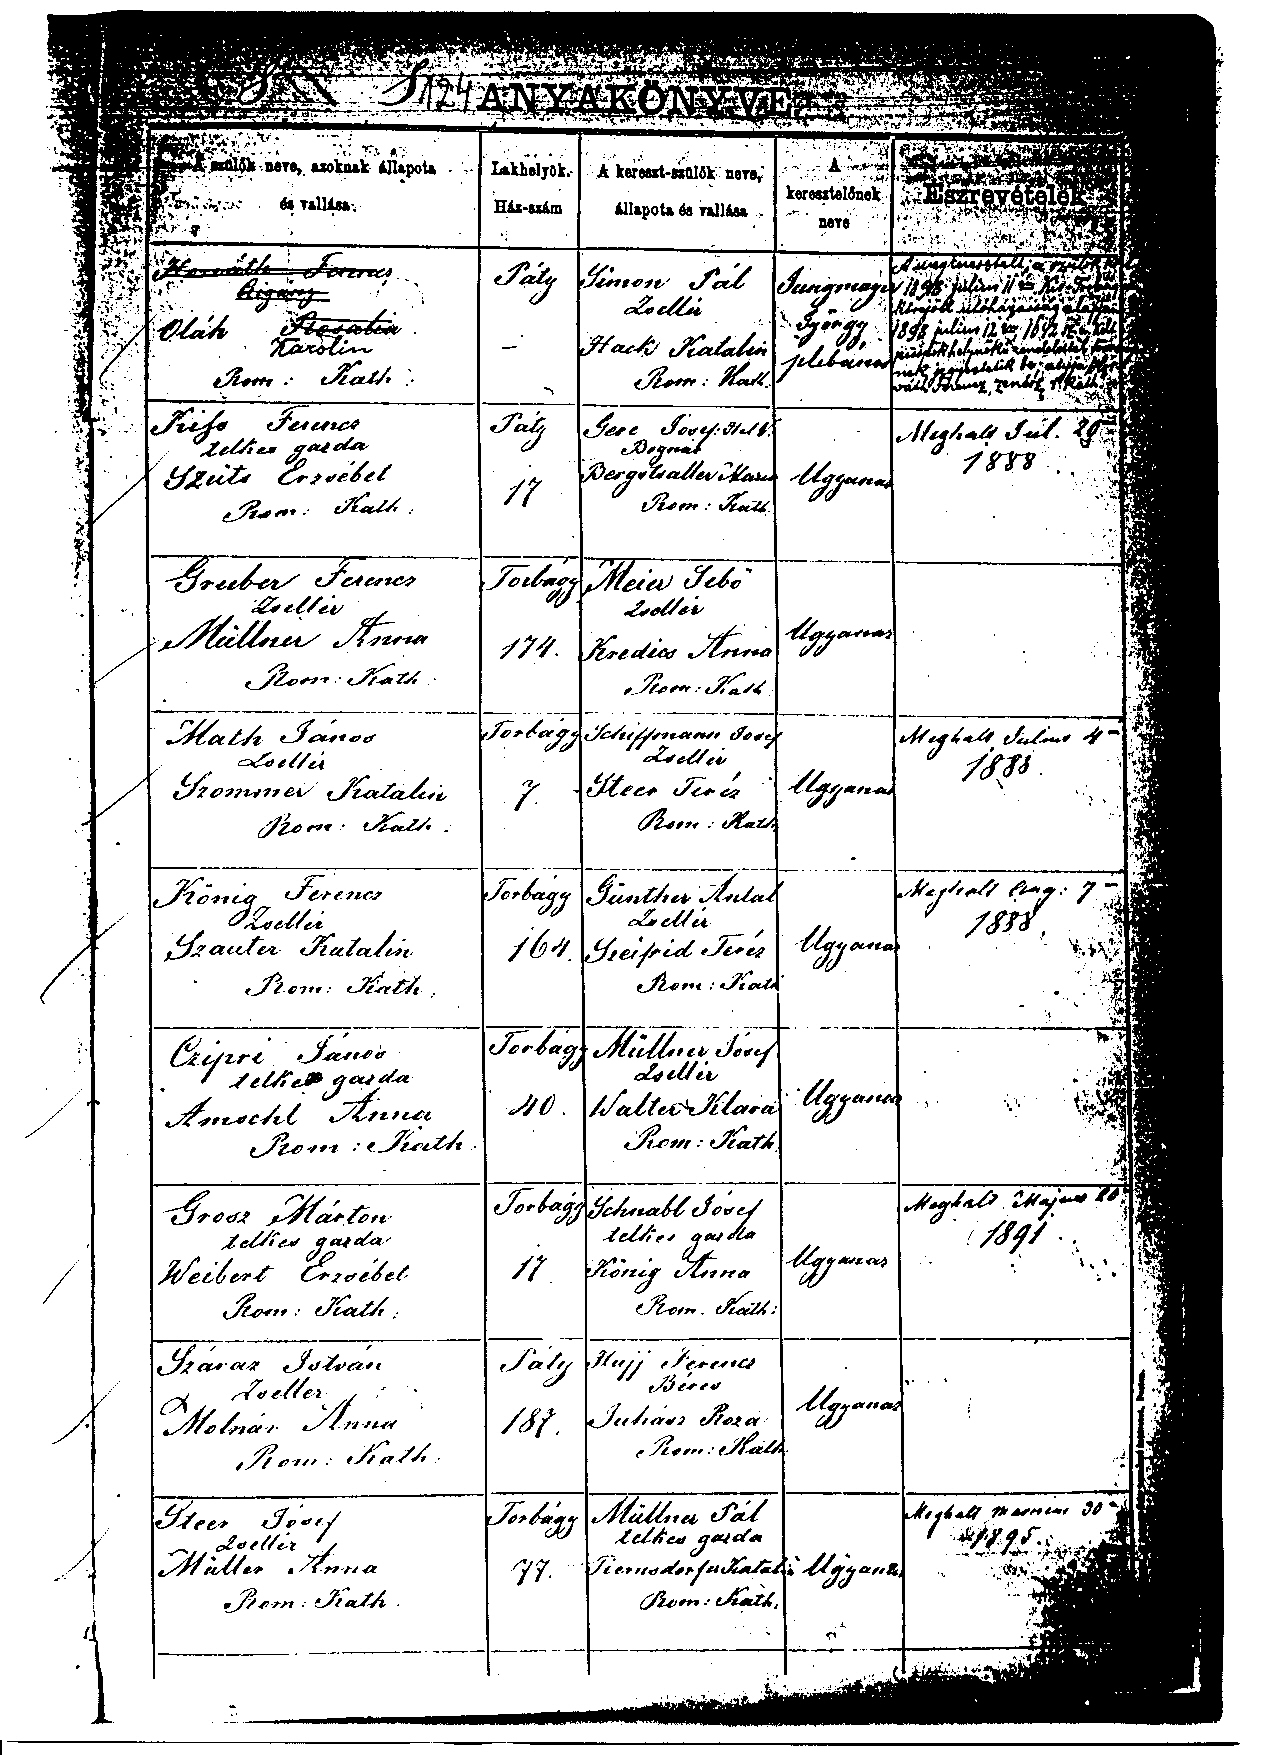 124 ANYAKÖNYVE
A szülők neve, azoknak állapota
és vallása.
Lakhelyök.
Ház-szám
A kereszt-szülők neve,
állapota és vallása
A
keresztelőnek
neve
Észrevételek
Horváth Ferencz
Czigány
Oláh Rosalia
Karolin
Rom: Kath:
Pály
-
-
Simon Pál
Zsellér
Hack Katalin
Rom: Kath.
Jungmayer
György
plebános
Kiss Ferencz
telkes gazda
Szüts Erzsébet
Rom: Kath:
Pály
17
Gere Josef
Bognár
Rom: Kath.
Ugyanaz
Meghalt Júl. 29
1888
Gruber Ferencz
Zsellér
Müllner Anna
Rom: Kath.
Torbágy
174.
Meier Sebö
Zsellér
Kredics Anna
Rom: Kath
Ugyanaz
Math János
Zsellér
Szommer Katalin
Rom: Kath.
Torbágy
7.
Schiffmann Josef
Zsellér
Steer Teréz
Rom: Kath
Ugyanaz
Meghalt Julius 4
1888.
König Ferencz
Zsellér
Szauter Katalin
Rom: Kath.
Torbágy
164.
Günther Antal
Zsellér
Seifrid Teréz
Rom: Kath
Ugyanaz
Meghalt Aug: 7
1888.
Czipri János
telkes gazda
Amschl Anna
Rom: Kath.
Torbágy
40.
Müllner Jósef
Zsellér
Walter Klara
Rom: Kath
Ugyanaz
Grosz Márton
telkes gazda
Weibert Erzsébet
Rom: Kath:
Torbágy
17
Schnabl Jósef
telkes gazda
König Anna
Rom. Kath:
Ugyanaz
Meghalt Majus 20
1891.
Száraz István
Zseller
Molnár Anna
Rom: Kath.
Pály
187.
Hujj Ferencz
Béres
Juhász Roza
Rom: Kath
Ugyanaz
Steer Jósef
Zsellér
Müller Anna
Rom: Kath.
Torbágy
77.
Müllner Pál
telkes gazda
Rom: Kath.
Ugyanaz
Meghalt 30
1895.